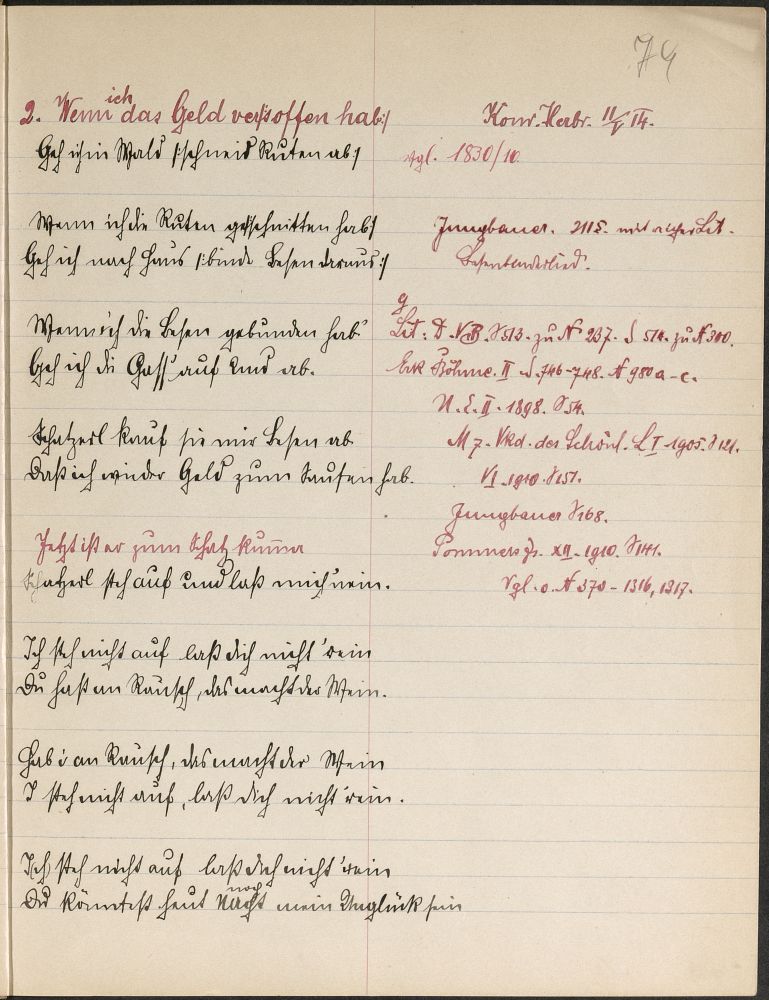 74
2. Wenn ich das Geld versoffen hab :/
Geh ich in Wald /: schneid Ruten ab :/
Wenn ich die Ruten geschnitten hab :/
Geh ich nach Haus /: binde Besen daraus :/
Wenn ich die Besen gebunden hab'
Geh ich die Gass' auf und ab.
Schatzerl kauf sie mir Besen ab
Daß ich wieder Geld zum Saufen hab.
Jetzt ist er zum Schatz kumma
Schatzerl steh auf und laß mich 'nein.
Ich steh nicht auf laß dich nicht 'rein
Du hast an Rausch, das macht der Wein.
Hab i an Rausch, das macht der Wein
I steh nicht auf, laß dich nicht 'rein.
Ich steh nicht auf laß dich nicht 'rein
Du könntest heut Nacht noch mein Unglück sein
Konr. Herbr. 11/V 14.
vgl. 1830/10
Jungbauer. 211 S. mit Lit.
Besenbinderlied.
Lit: D. S 513. zu N 237. S 514. zu N 300.
Erk Böhme. II. S. 746-748. N 980 a-c.
II. 1898. S 54.
Vkd. der Schönh. L I 1905. S 121.
VI 1910. S 157.
Jungbauer S 168.
XII. 1910. S 141.
Vgl. o. N 370 - 1316, 1317.